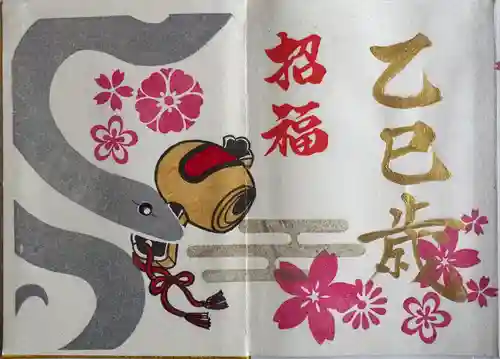 乙巳歳
招福